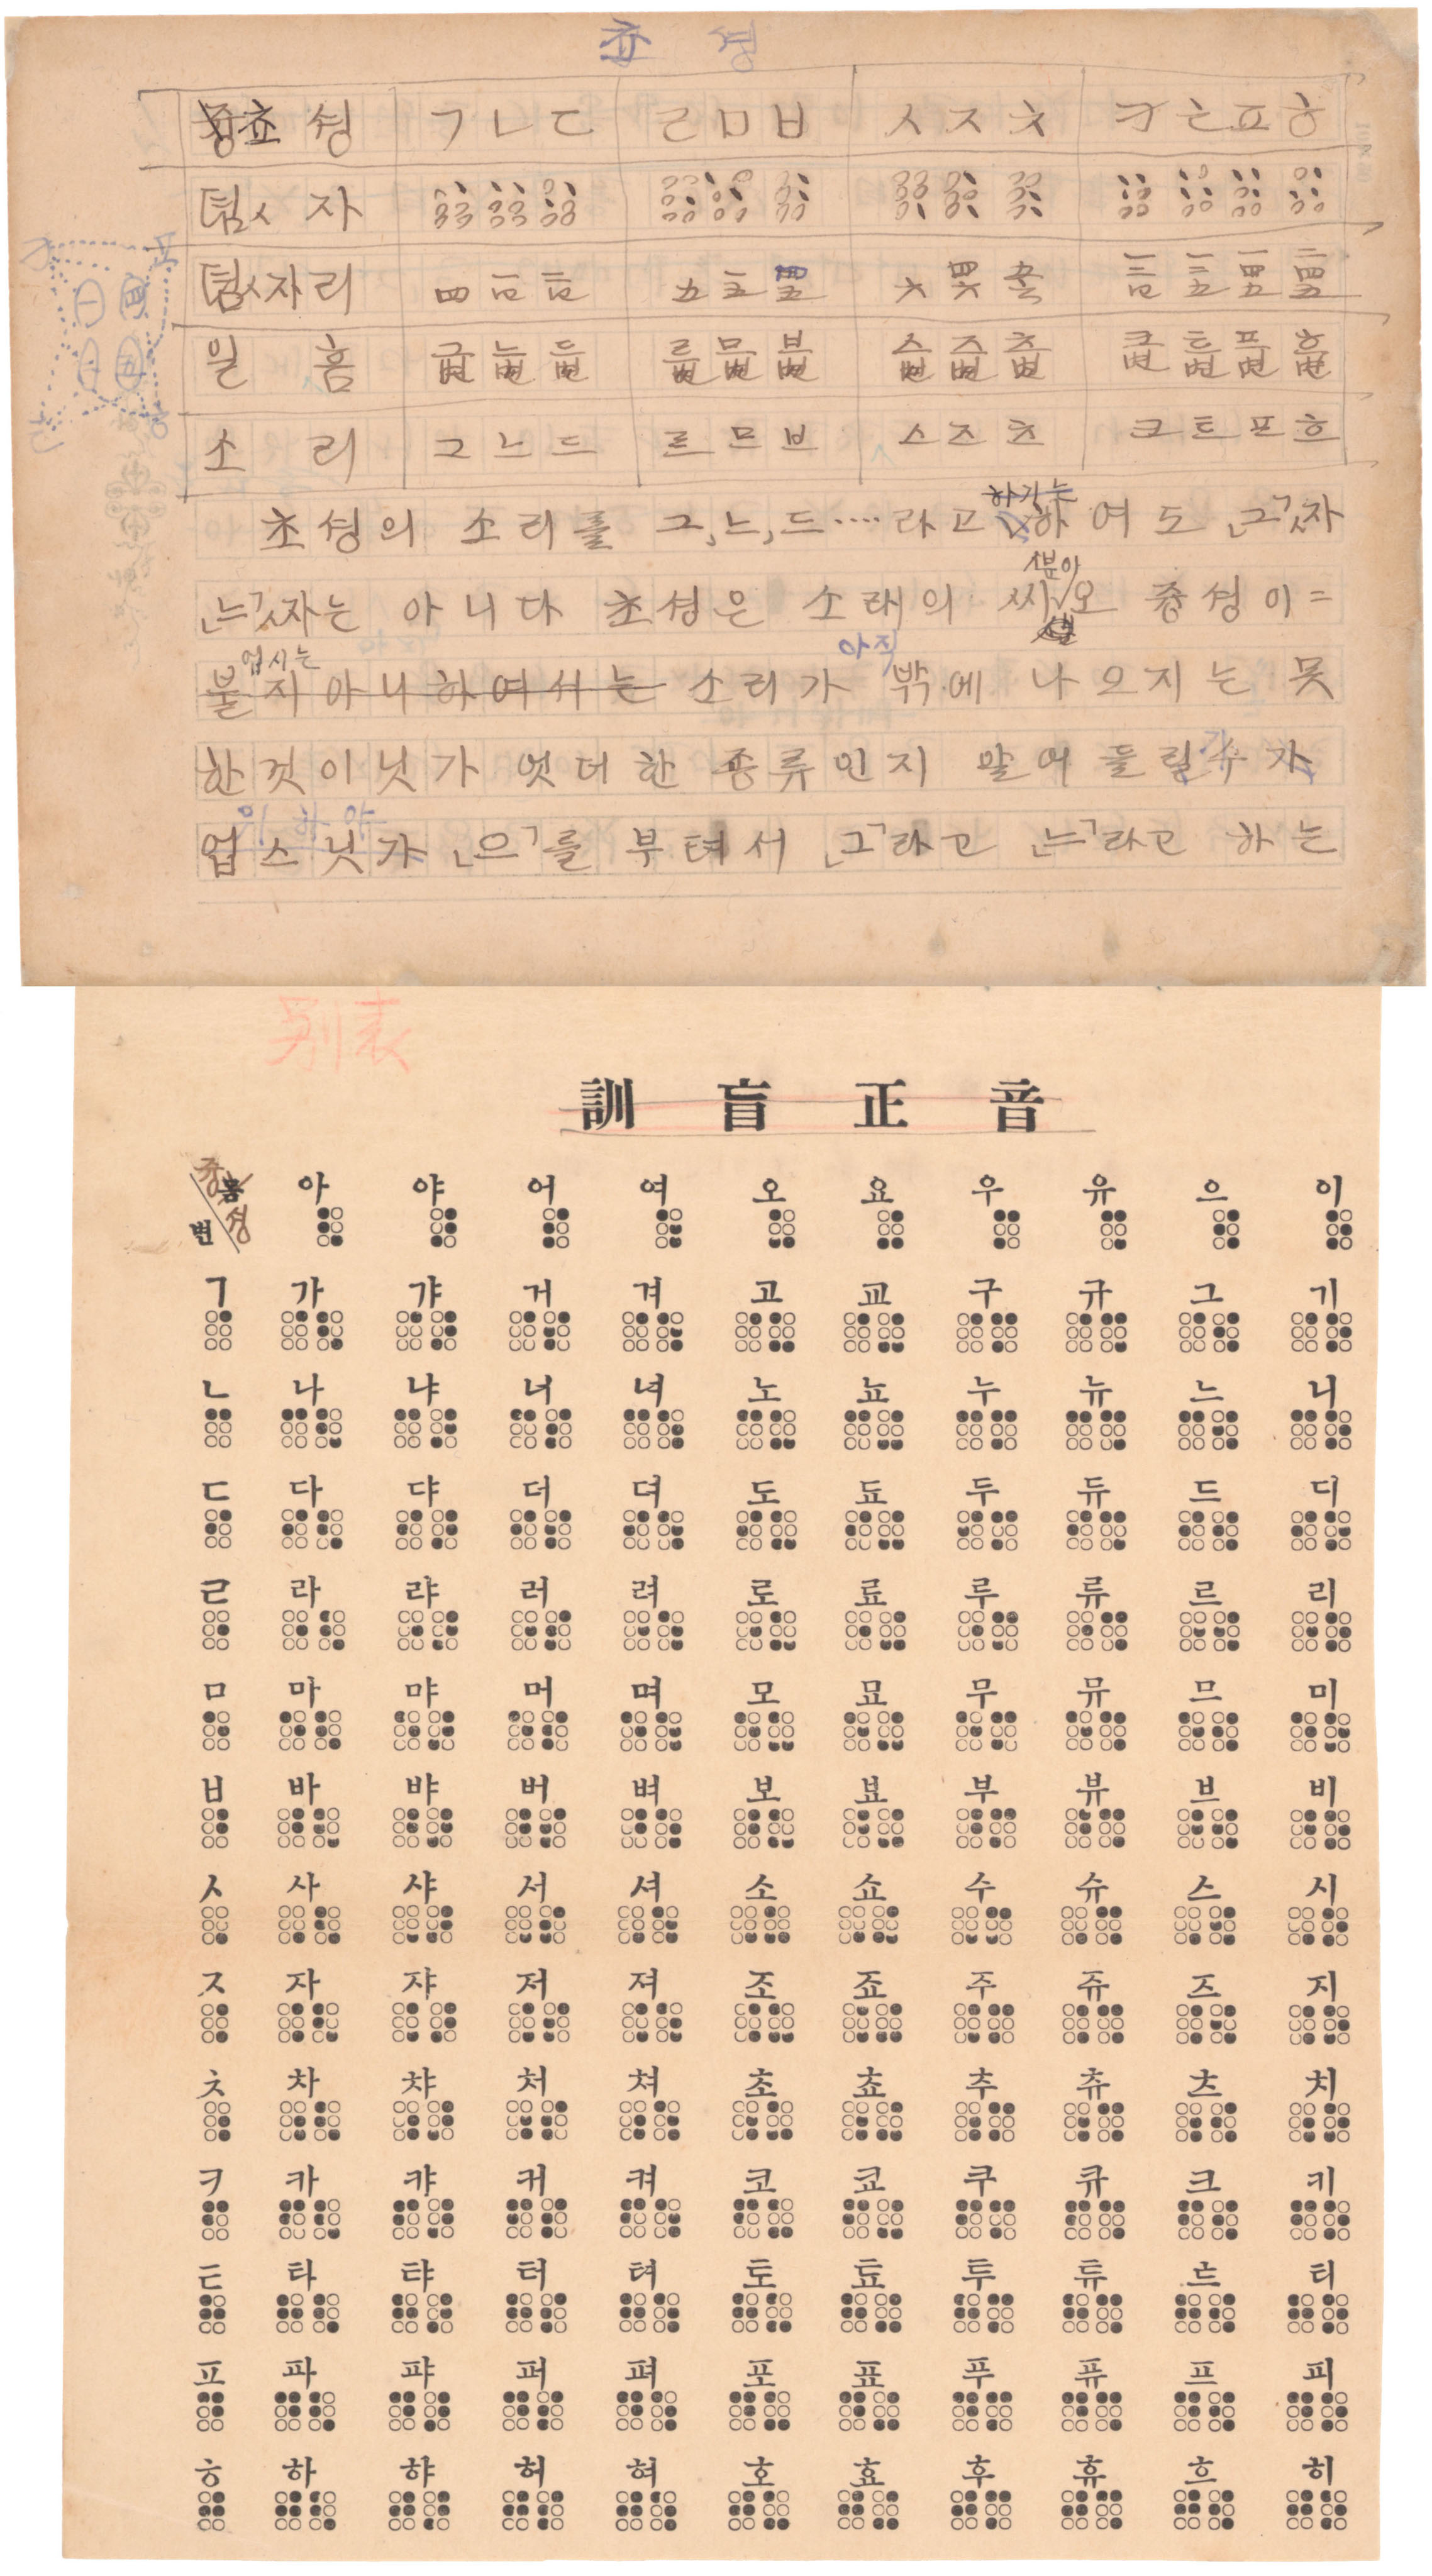 초 셩
초 셩 ㄱ ㄴ ㄷ ㄹ ㅁ ㅂ ㅅ ㅈ ㅊ ㅋ ㅌ ㅍ ㅎ
뎜ㅅ 자
뎜ㅅ자리 四 一四 二四 五 一五 四五 六 四六 五六 一二四 一二五 一四五 二四五
일 홈
소 리 그 느 드 르 므 브 스 즈 츠 크 트 프 흐
초셩의 소리를 그, 느, 드····라고 하여도 「그」ㅅ자
「느」ㅅ자는 아니다 초셩은 소래의 씨 분아오 즁셩이=
업시는 소리가 아직 밖에 나오지는 못
한것이닛가 엇더한 죵류인지 말에 들릴수가
업스닛가 위하야 「으」를 부텨서 「그」라고 「느」라고 하는
別表
訓 盲 正 音
즁 셩 변 아 야 어 여 오 요 우 유 으 이
ㄱ 가 갸 거 겨 고 교 구 규 그 기
ㄴ 나 냐 너 녀 노 뇨 누 뉴 느 니
ㄷ 다 댜 더 뎌 도 됴 두 듀 드 디
ㄹ 라 랴 러 려 로 료 루 류 르 리
ㅁ 마 먀 머 며 모 묘 무 뮤 므 미
ㅂ 바 뱌 버 벼 보 뵤 부 뷰 브 비
ㅅ 사 샤 서 셔 소 쇼 수 슈 스 시
ㅈ 자 쟈 저 져 조 죠 주 쥬 즈 지
ㅊ 차 챠 처 쳐 초 쵸 추 츄 츠 치
ㅋ 카 캬 커 켜 코 쿄 쿠 큐 크 키
ㅌ 타 탸 터 텨 토 툐 투 튜 트 티
ㅍ 파 퍄 퍼 펴 포 표 푸 퓨 프 피
ㅎ 하 햐 허 혀 호 효 후 휴 흐 히